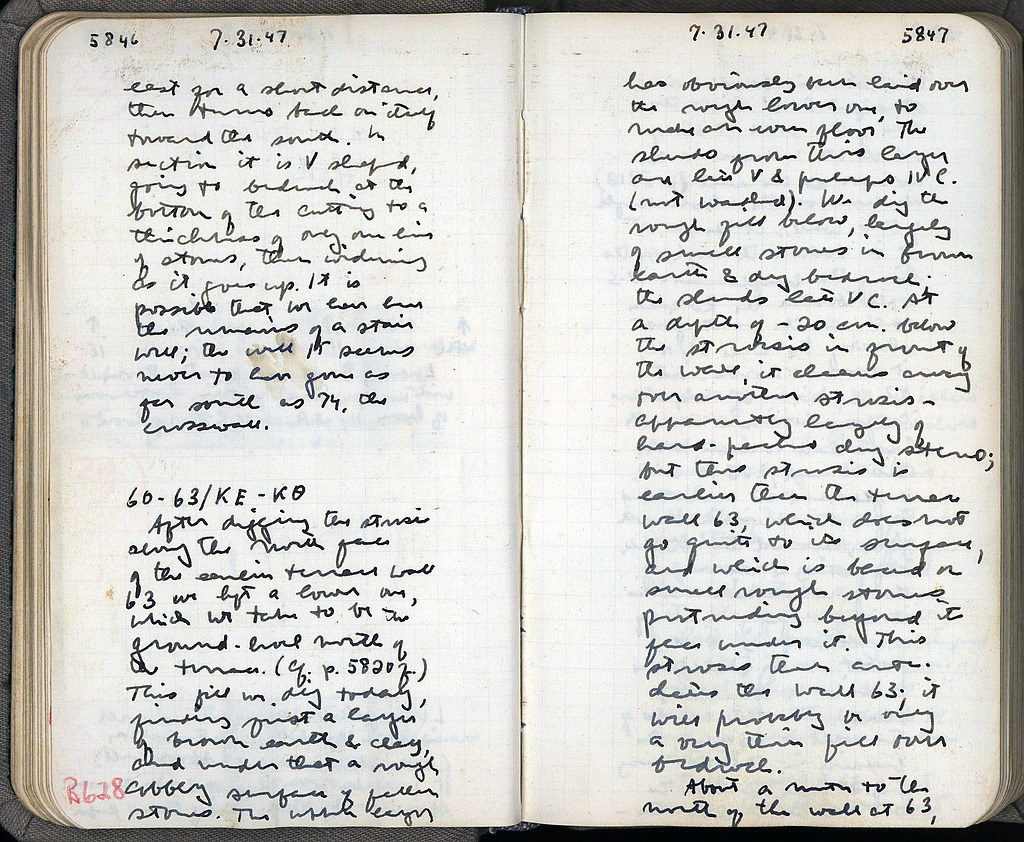 5846 7.31.47
east for a short distance,
then turns back on itself
toward the south. In
section it is V shaped,
going to bedrock at the
bottom of the cutting to a
thickness of only one line
of stones, then widening
as it goes up. It is
possible that we have here
the remains of a stair
well; the wall it seems
never to have gone as
far south as 74, the
crosswall.
60-63/ΚΕ-ΚΘ
After digging the strosis
along the north face
of the earlier terrace wall
63 we left a lower one,
which we take to be the
ground-level north of
the terrace. (Cf. p. 5820 f.)
This fill we dig today,
finding first a layer
of brown earth & clay,
and under that a rough
cobbly surface of fallen
B628
stones. The upper layer
7.31.47 5847
has obviously been laid over
the rough lower one, to
make an even floor. The
sherds from this layer
are late V & perhaps IV C.
(not washed). We dig the
rough fill below, largely
of small stones in brown
earth & dug bedrock.
the sherds late V C. At
a depth of -20 cm. below
the strosis in front of
the wall, it cleans away
over another strosis -
apparently largely of
hard-packed dug stereo;
but this strosis is
earlier than the terrace
wall 63, which does not
go quite to its surface,
and which is based on
small rough stones
protruding beyond its
face under it. This
strosis then ante-
dates the wall 63; it
will probably be only
a very thin fill over
bedrock.
About a meter to the
north of the wall at 63,